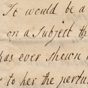 It would be a
on a Subject th
has ever shewn
to her the perfu